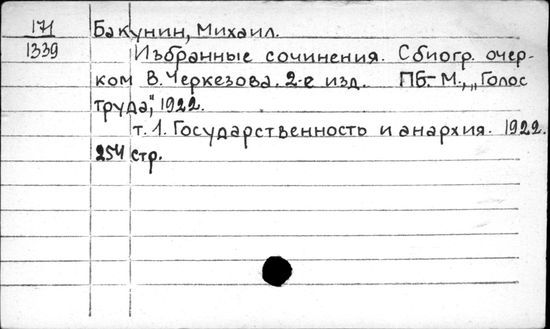 171
1339
Бакунин, Михаил.
Избранные сочинения. С биогр. очер-
ком В. Черкезова. 2-е изд. ПБ.-М., „Голос
труда", 1922.
т. 1. Государственность и анархия. 1922.
254 стр.